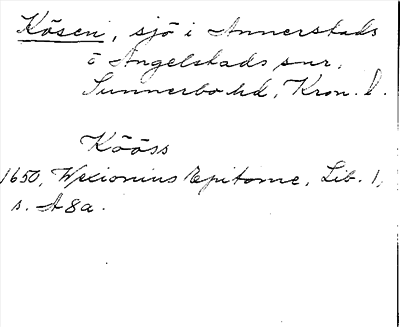 Kösen, sjö i Annerstads
o Angelstads snr,
Sunnerbo hd, Kron. l.
Kööss
1650, Wexionius Epitome, Lib. 1,
s. A8a.